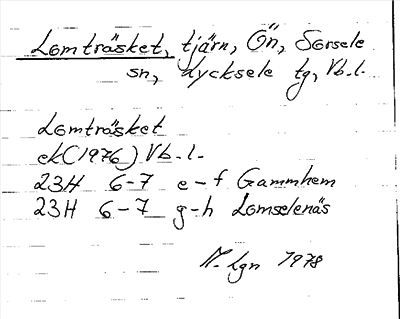 Lomträsket, tjärn, Ön, Sorsele
sn, Lycksele tg, Vb.l.
Lomträsket
ek(1976) Vb.l.
23H 6-7 e-f Gammhem
23H 6-7 g-h Lomselenäs
Lgn 1978